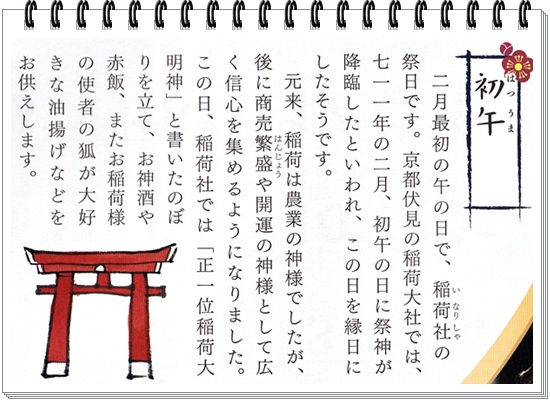 初午
はつうま
二月最初の午の日で、稲荷社の
いなりしゃ
祭日です。京都伏見の稲荷大社では、
七一一年の二月、初午の日に祭神が
降臨したといわれ、この日を縁日に
したそうです。
元来、稲荷は農業の神様でしたが、
後に商売繁盛や開運の神様として広
はんじょう
く信心を集めるようになりました。
この日、稲荷社では「正一位稲荷大
明神」と書いたのぼ
りを立て、お神酒や
赤飯、またお稲荷様
の使者の狐が大好
きな油揚げなどを
お供えします。